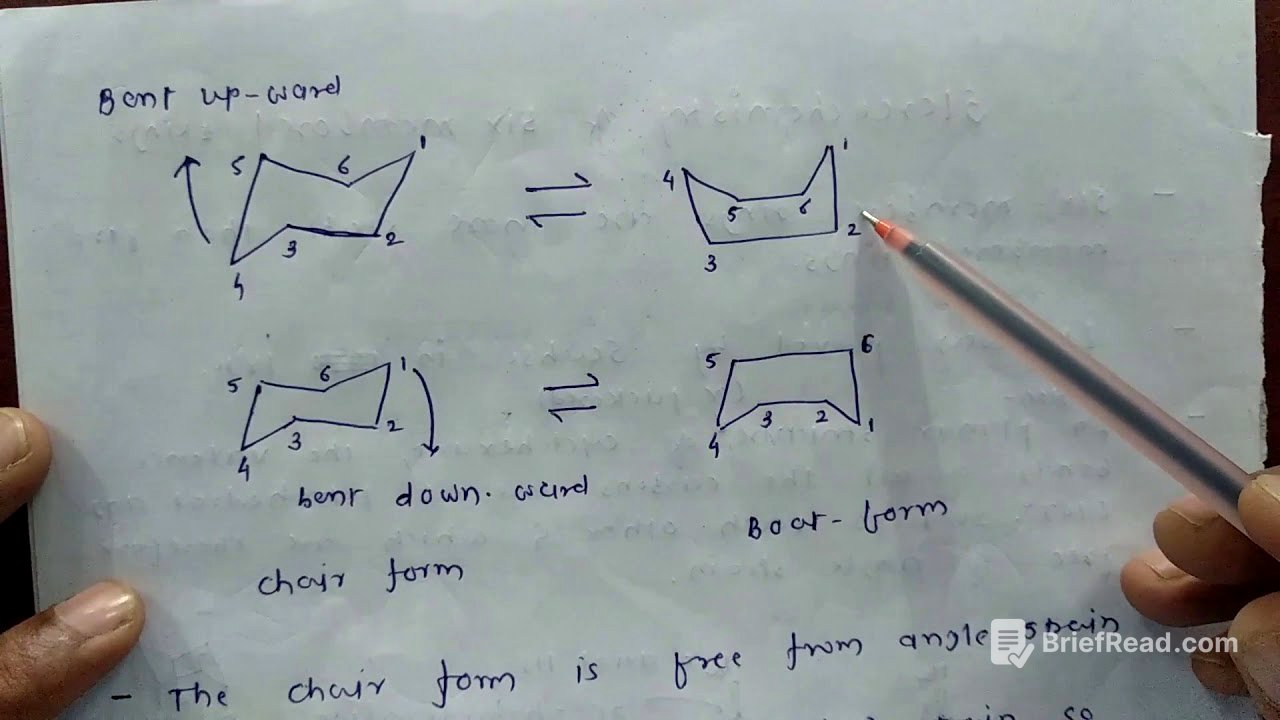 Bent up-ward
5 6 1
3 2
4
4 1
5 6 2
3
5 6 1
3 2
4
5 6
3 2
4 1
bent down. ward
Boat-form
chair form
- The chair form is free from angle strain
so
BriefRead.com